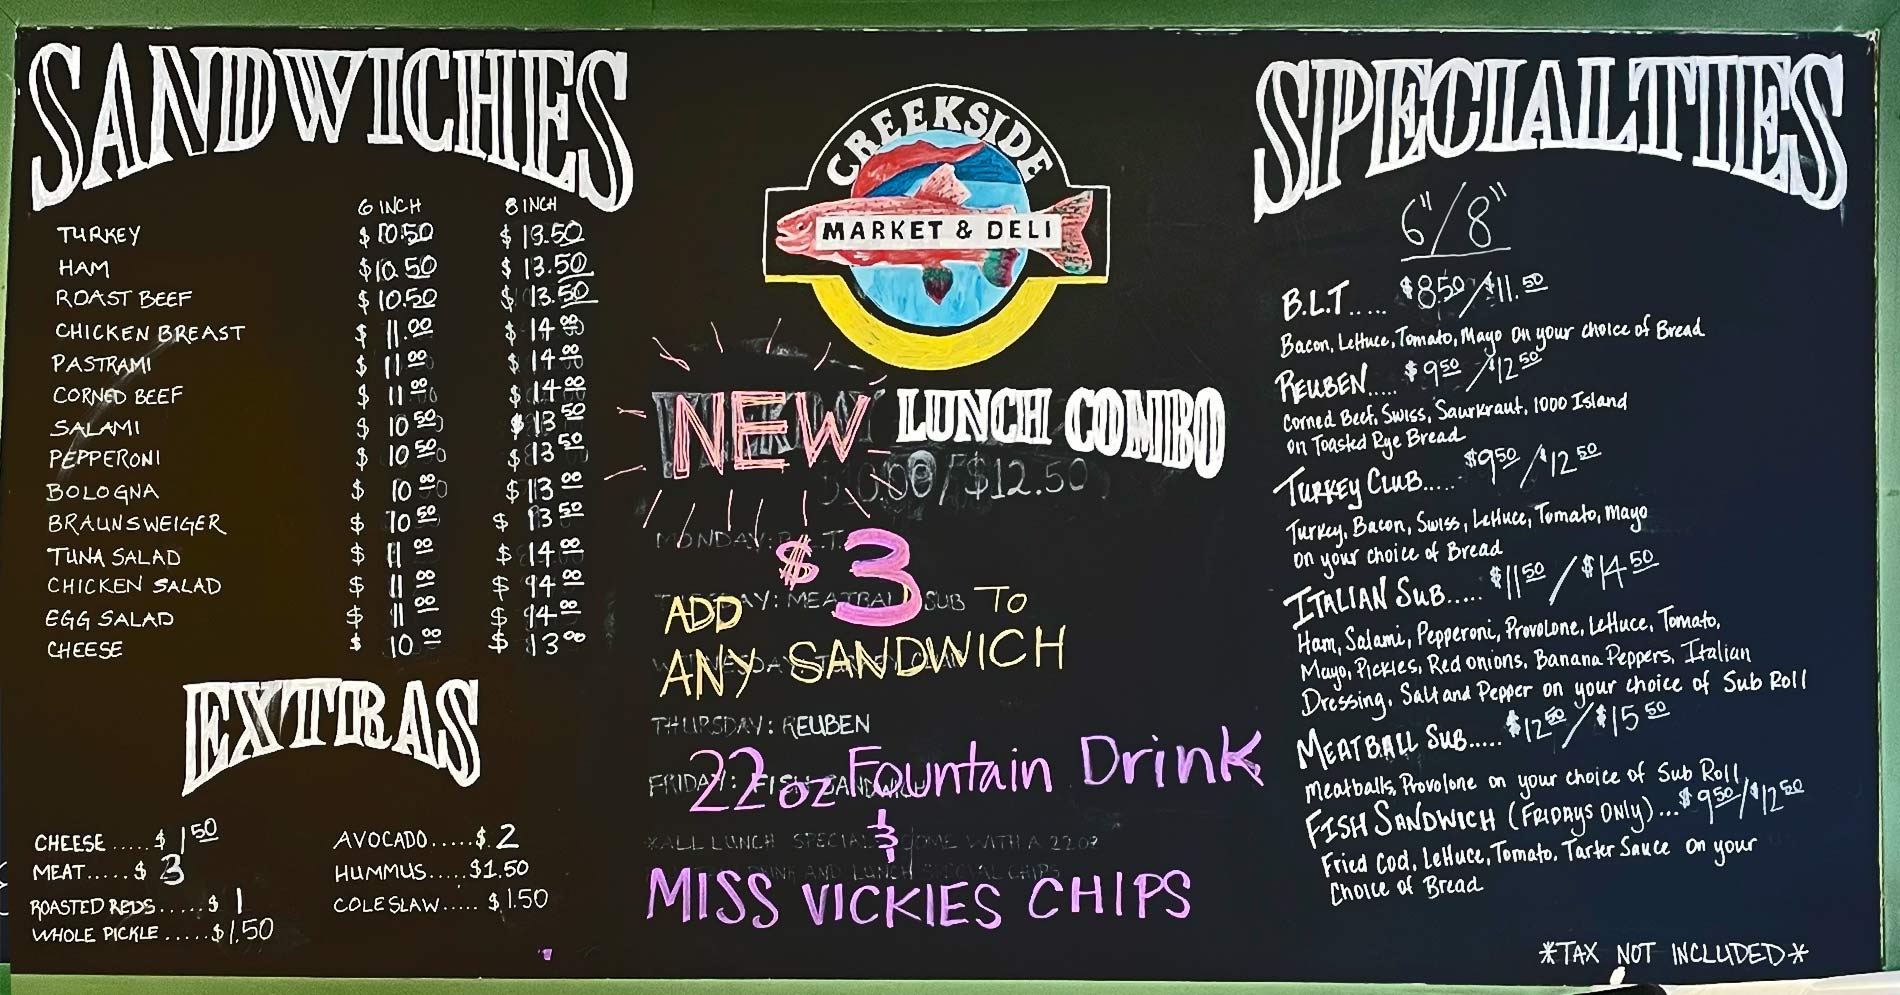 SANDWICHES
6 INCH 8 INCH
TURKEY $10.50 $13.50
HAM $10.50 $13.50
ROAST BEEF $10.50 $13.50
CHICKEN BREAST $11.00 $14.00
PASTRAMI $11.00 $14.00
CORNED BEEF $11.00 $14.00
SALAMI $10.50 $13.50
PEPPERONI $10.50 $13.50
BOLOGNA $10.00 $13.00
BRAUNSWEIGER $10.50 $13.50
TUNA SALAD $11.00 $14.00
CHICKEN SALAD $11.00 $14.00
EGG SALAD $11.00 $14.00
CHEESE $10.00 $13.00
EXTRAS
CHEESE.....$1.50
MEAT.....$3
ROASTED REDS.....$1
WHOLE PICKLE.....$1.50
AVOCADO.....$2
HUMMUS.....$1.50
COLESLAW.....$1.50
CREEKSIDE
MARKET & DELI
NEW LUNCH COMBO
/$12.50
MONDAY: B.L.T.
$3
MEATBALL SUB
ADD TO
ANY SANDWICH
THURSDAY: REUBEN
FRIDAY: FISH SANDWICH
22oz Fountain Drink
ALL LUNCH SPECIALS COME WITH A 22oz
&
DRINK AND LUNCH SPECIAL CHIPS
MISS VICKIES CHIPS
SPECIALTIES
6"/8"
B.L.T..... $8.50/$11.50
Bacon, Lettuce, Tomato, Mayo on your choice of Bread
REUBEN..... $9.50/$12.50
Corned Beef, Swiss, Saurkraut, 1000 Island
on Toasted Rye Bread
TURKEY CLUB..... $9.50/$12.50
Turkey, Bacon, Swiss, Lettuce, Tomato, Mayo
on your choice of Bread
ITALIAN SUB..... $11.50/$14.50
Ham, Salami, Pepperoni, Provolone, Lettuce, Tomato,
Mayo, Pickles, Red onions, Banana Peppers, Italian
Dressing, Salt and Pepper on your choice of Sub Roll
MEATBALL SUB..... $12.50/$15.50
Meatballs, Provolone on your choice of Sub Roll
FISH SANDWICH (FRIDAYS ONLY)... $9.50/$12.50
Fried Cod, Lettuce, Tomato, Tarter Sauce on your
Choice of Bread
*TAX NOT INCLUDED*